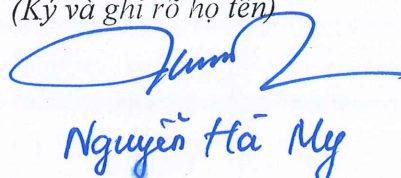 (Ký và ghi rõ họ tên)
Nguyễn Hà My